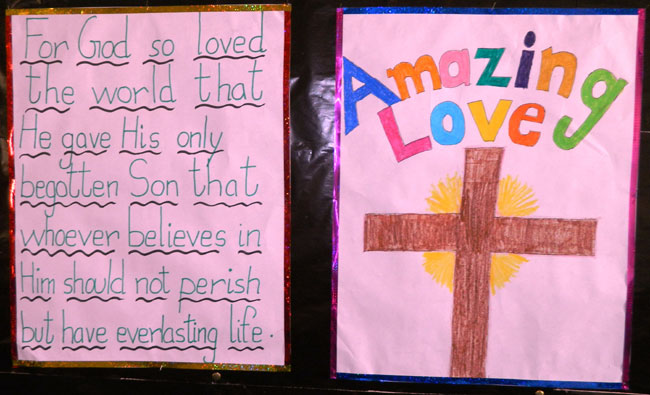 For God so loved
the world that
He gave His only
begotten Son that
whoever believes in
Him should not perish
but have everlasting life.
Amazing
Love